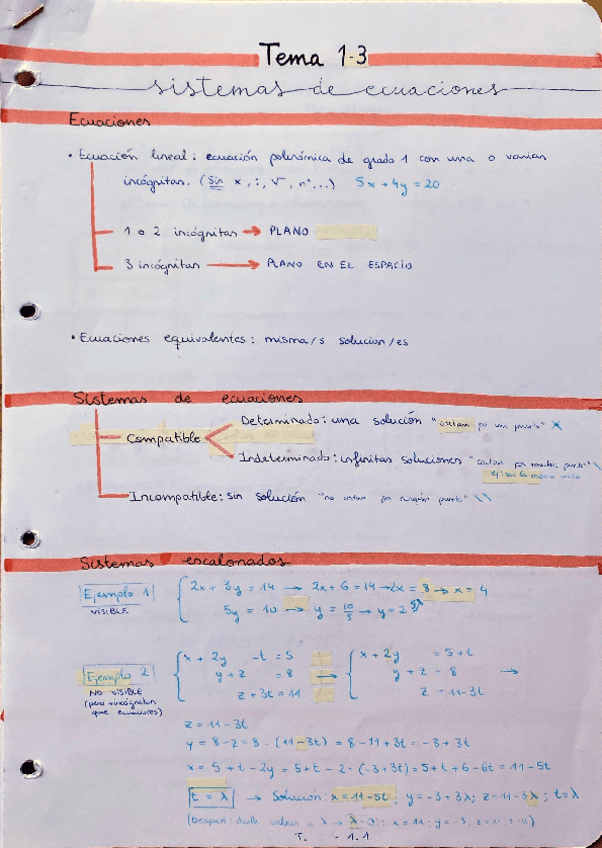 Tema 1-3
sistemas de ecuaciones
Ecuaciones
• Ecuación lineal: ecuación polinómica de grado 1 con una o varias
incógnitas. (Sin x, :, √, nˣ, ...) 5x + 4y = 20
1 o 2 incógnitas → PLANO
3 incógnitas → PLANO EN EL ESPACIO
• Ecuaciones equivalentes: misma/s solucion/es
Sistemas de ecuaciones
Compatible
Determinado: una solución "cortan por un punto" X
Indeterminado: infinitas soluciones "cortan por muchos puntos" \
Incompatible: sin solución "no cortan por ningún punto" \\
Sistemas escalonados
Ejemplo 1
VISIBLE
2x + 3y = 14 → 2x + 6 = 14 → 2x = 8 → x = 4
5y = 10 → y = 10/5 → y = 2
Ejemplo 2
NO VISIBLE
(pero + incógnitas
que ecuaciones)
x + 2y - t = 5
y + z = 8
z + 3t = 11
→
x + 2y = 5 + t
y + z = 8
z = 11 - 3t
→
z = 11 - 3t
y = 8 - z = 8 - (11 - 3t) = 8 - 11 + 3t = -3 + 3t
x = 5 + t - 2y = 5 + t - 2 · (-3 + 3t) = 5 + t + 6 - 6t = 11 - 5t
t = λ → Solución: x = 11 - 5t; y = -3 + 3λ; z = 11 - 3λ; t = λ
(Después: darle valores a λ → λ = 0: x = 11; y = -3, z = 11, t = 0)
T. - 1.1